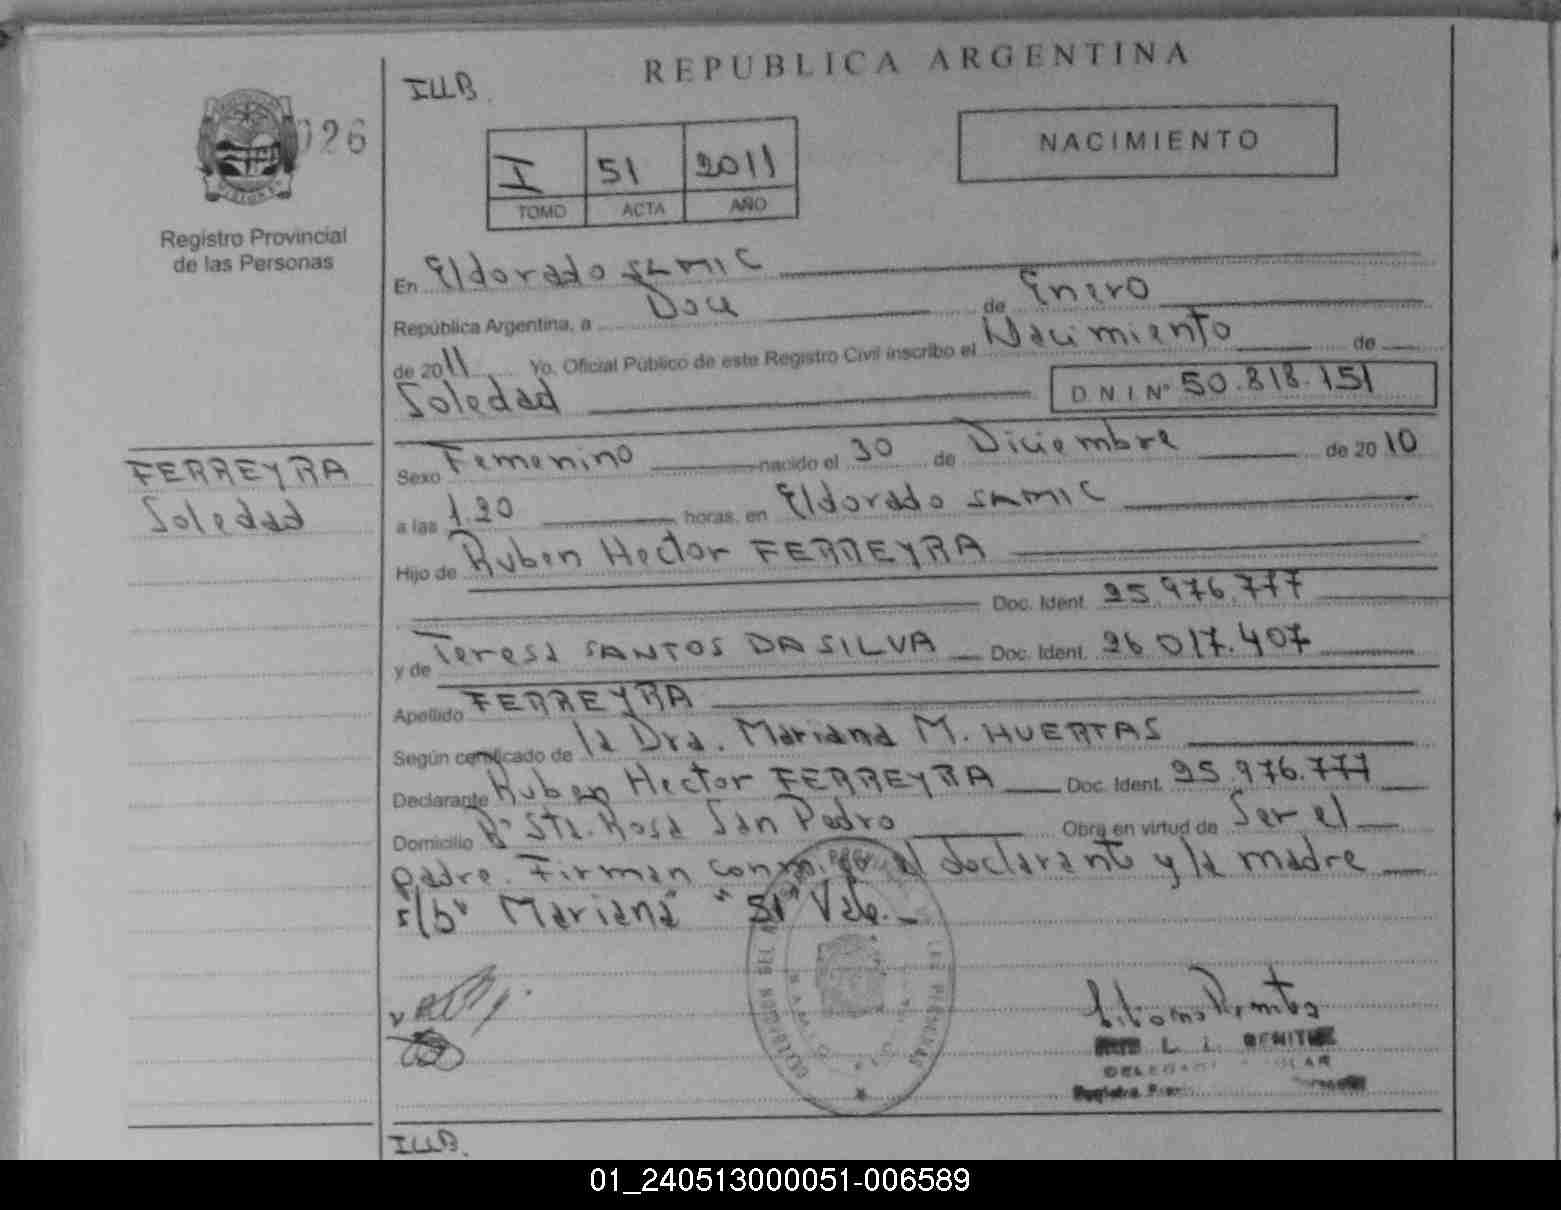 REPUBLICA ARGENTINA
ILLB.
026
NACIMIENTO
I 51 2011
TOMO ACTA AÑO
Registro Provincial
de las Personas
En Eldorado SAMIC
República Argentina, a Doce de Enero
de 2011 Yo, Oficial Público de este Registro Civil inscribo el Nacimiento de
Soledad D.N.I. Nº 50.818.151
FERREYRA
Soledad
Sexo Femenino nacido el 30 de Diciembre de 2010
a las 1.20 horas, en Eldorado SAMIC
Hijo de Ruben Hector FERREYRA
Doc. Ident. 25.976.777
y de Teresa SANTOS DA SILVA Doc. Ident. 26.017.407
Apellido FERREYRA
Según certificado de la Dra. Mariana M. HUERTAS
Declarante Ruben Hector FERREYRA Doc. Ident. 25.976.777
Domicilio Bº Sta. Rosa San Pedro Obra en virtud de Ser el
padre. Firman conmigo el declarante y la madre
s/bº "Mariana" "51" Vale.
L. I. BENITEZ
ILLB.
01_240513000051-006589